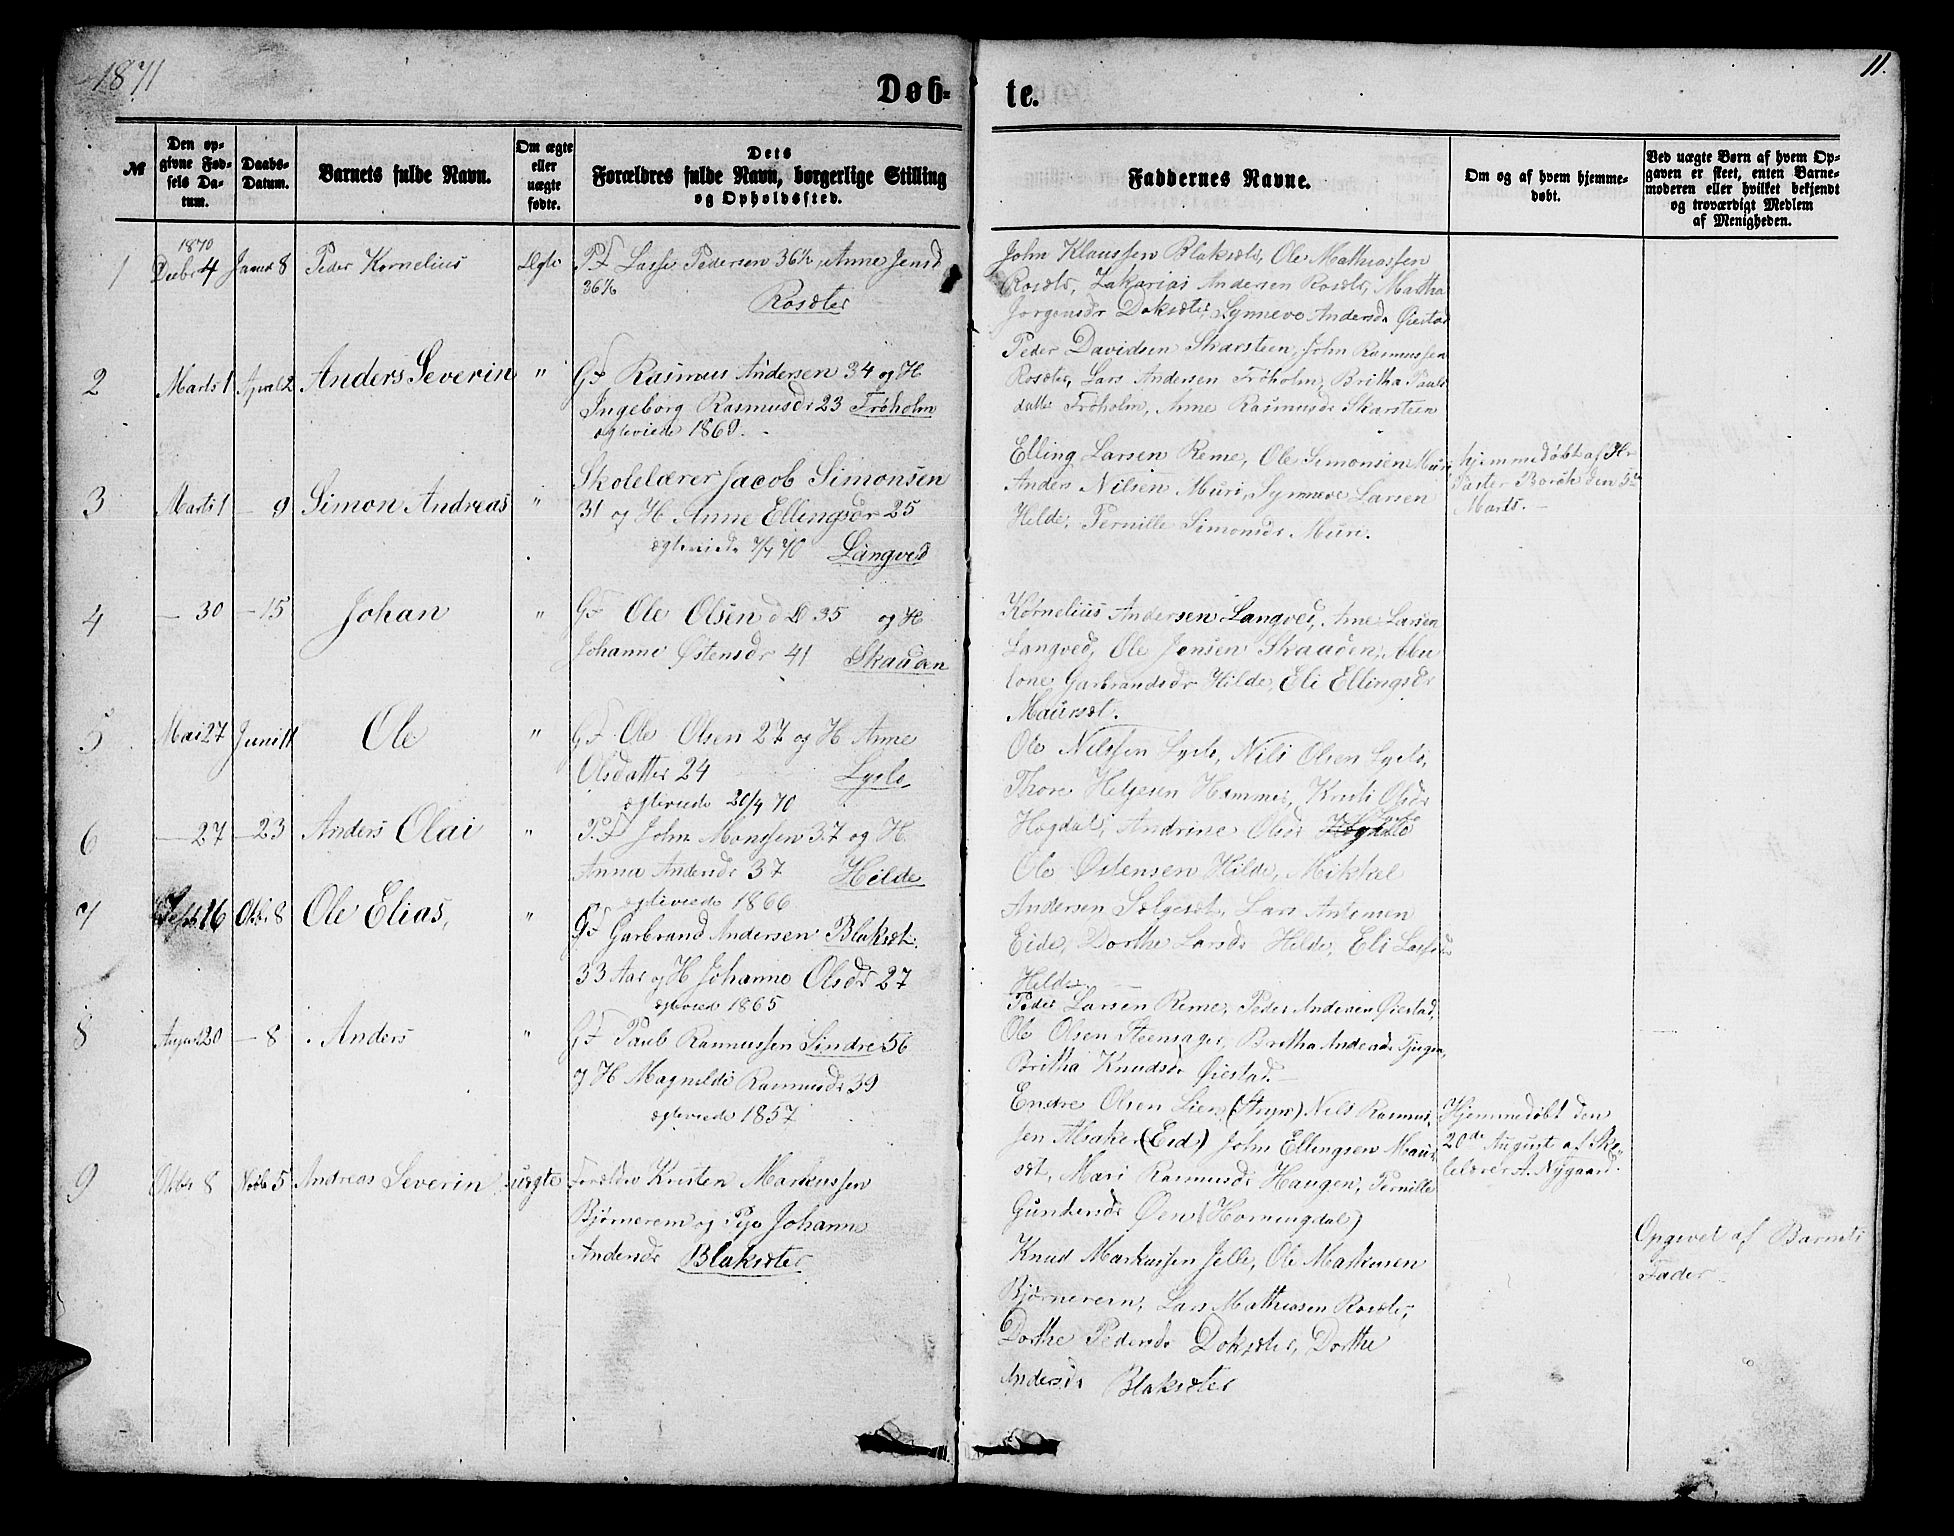 1871
Døb-
te.
11.
№
Den op-
givne Fød-
sels Da-
tum.
Daabs-
Datum.
Barnets fulde Navn.
Om ægte
eller
uægte
fødte.
Dets
Forældres fulde Navn, borgerlige Stilling
og Opholdssted.
Faddernes Navne.
Om og af hvem hjemme-
døbt.
Ved uægte Børn af hvem Op-
gaven er skeet, enten Barne-
moderen eller hvilket bekjendt
og troværdigt Medlem
af Menigheden.
1
1870
Decbr 4
Januar 8
Peder Kornelius
Ægte
Lasse Pedersen 36½, Anne Jensd
36½
Rosæter
John Klaussen Blaksæter, Ole Mathiassen
Rosæter, Zakarias Andersen Rosæter, Martha
Jørgensdr Doksæter, Synneve Andersdr Øiestad
2
Marts 1
April 2
Anders Severin
"
GF Rasmus Andersen 34 og H
Ingeborg Rasmusdr 23 Frøholm
ægteviede 1869.
Peder Davidsen Skarsteen, John Rasmussen
Rosæter, Lars Andersen Frøholm, Britha Pauls
datter Frøholm, Anne Rasmusdr Skarsteen
3
Marts 1
— 9
Simon Andreas
"
Skolelærer Jacob Simonsen
31 og H Anne Ellingsdr 25
ægteviede 7/7 70 Langved
Elling Larsen Reme, Ole Simonsen Muri,
Anders Nilsen Muri, Synneve Larsen
Hilde, Pernille Simonsdr Muri.
hjemmedøbt af Hr
Paster Borch den 5te
Marts.—
4
— 30
— 15
Johan
"
GF Ole Olsen 35 og H
Johanne Østensdr 41 Skauden
Kornelius Andersen Langved, Ane Larsen
Langved, Ole Jensen Skauden, Abe
lone Garbrandsdr Hilde, Eli Ellingsdr
Maursæt.
5
Mai 27
Juni 11
Ole
"
GF Ole Olsen 27 og H Anne
Olsdatter 24 Lysle
ægteviede 20/7 70
Ole Nilssen Lysle, Nils Olsen Lysle,
Thore Helgesen Hammer, Kirsti Olsdr
Hogdal, Andrine Olsdr
6
— 27
— 23
Anders Olai
"
P.F John Monssen 37 og H.
Anna Andersdr 37 Hilde
ægteviede 1866
Ole Østensen Hilde, Mikkel
Andersen Sølgesæt, Lars Antonsen
Eide, Dorthe Larsdr Hilde, Eli Lassesdr
Hilde.—
7
Septb 16
Oktb. 8
Ole Elias,
"
GF Garbrand Andersen Blaksæt.
33 Aar og H Johanne Olsdr 27
ægteviede 1865
Peder Larsen Reme, Peder Andersen Øiestad,
Ole Olsen Steensager, Britha Andersdr
Britha Knudsdr Øiestad.—
8
August 20
— 8
Anders
"
GF Paul Rasmussen Sindre 56
og H Magnilde Rasmusdr 39
ægteviede 1857
Endre Olsen Lien (Stryn) Nils Rasmus,
sen Maker (Eid) John Ellingsen Maur
sæt, Mari Rasmusdr Haugen, Pernille
Gundersdr Øen (Horningdal)
Hjemmedøbt den
20de August af Sko-
lelærer A. Nygaard.
9
Oktbr 8
Novbr 5
Andreas Severin
uægte
Forældre Kristen Markussen
Bjørnerem og Pige Johanne
Andersdr Blaksæter
Knud Markussen Jelle, Ole Markusen
Bjørnerem, Lars Mathiasen Rosæter,
Dorthe Pedersdr Doksæter, Dorthe
Andersdr Blaksæter
Opgivet af Barnets
Fader